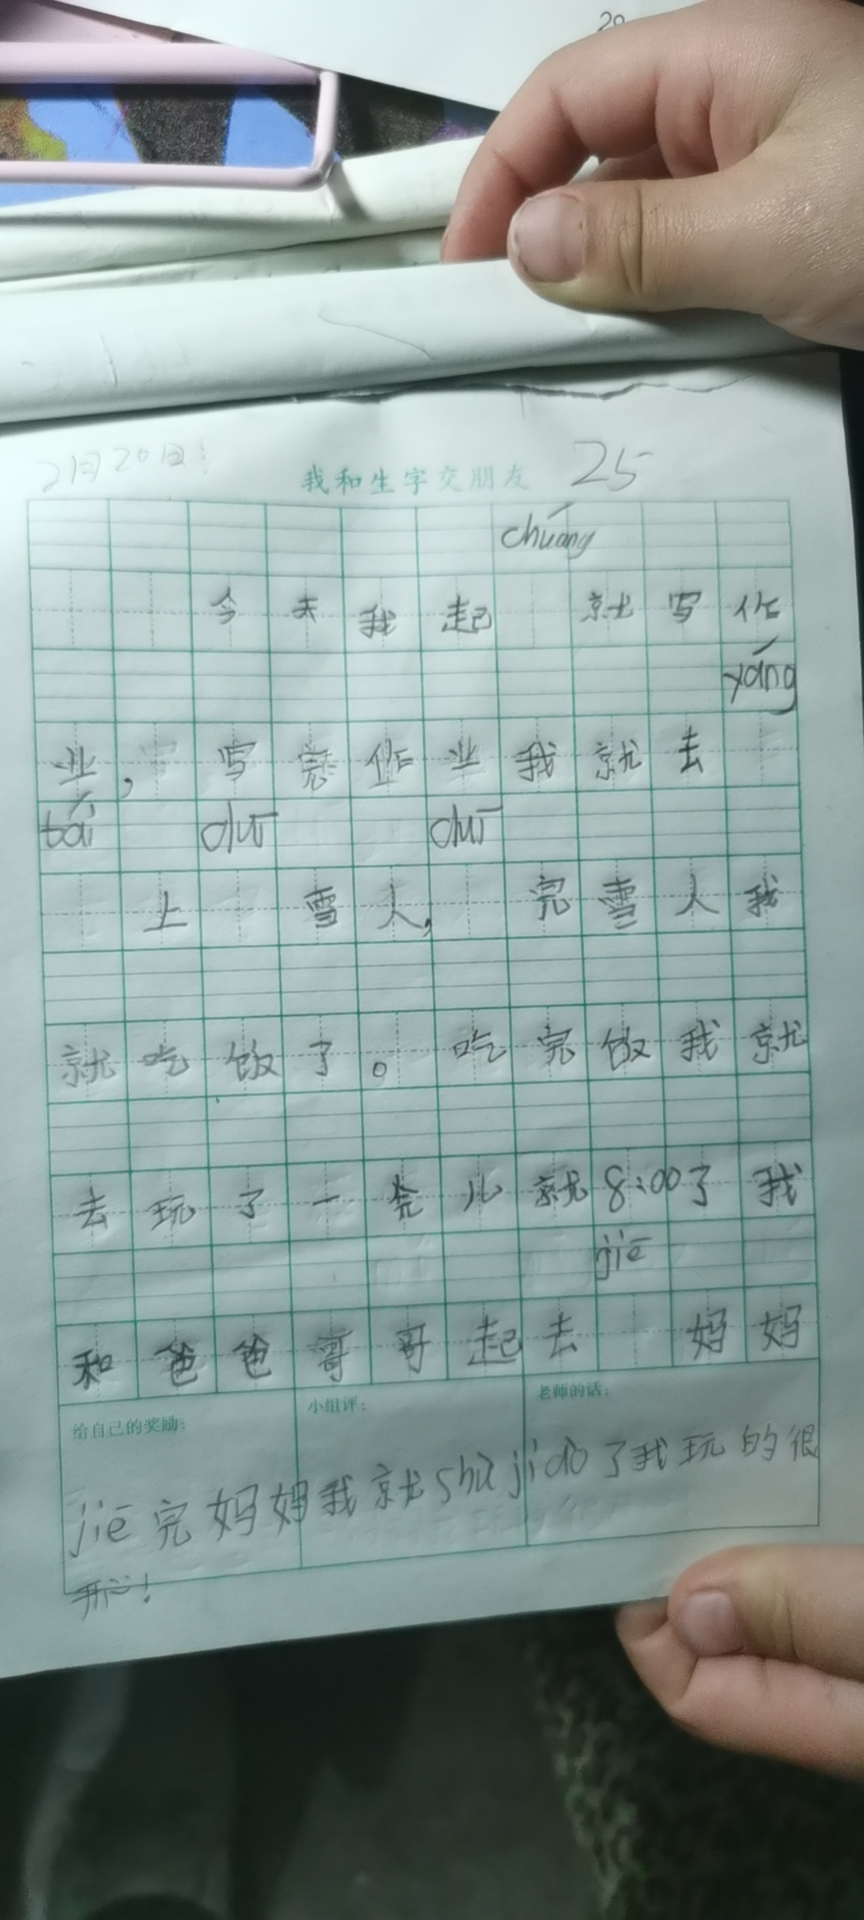 20
2月20日:
我和生字交朋友 25
chuáng
今天我起 就写作
yáng
业,写完作业我就去
tái duī duī
上 雪人, 完雪人我
就吃饭了。吃完饭我就
去玩了一会儿就8:00了我
jiē
和爸爸哥哥起去 妈妈
给自己的奖励: 小组评: 老师的话:
jiē完妈妈我就shuì jiào了我玩的很
开心!